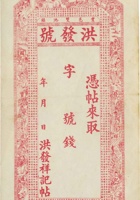 洪發號
憑帖來取
字號錢
年月日
洪發祥記帖